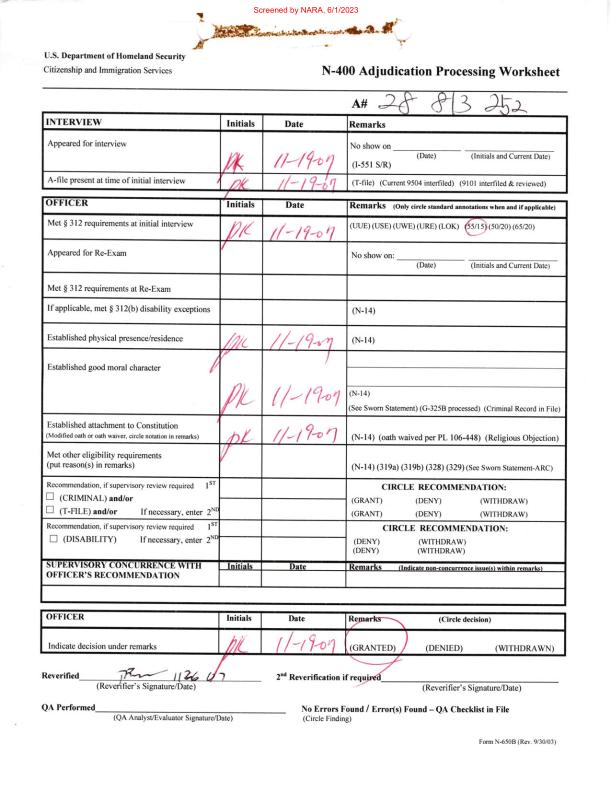 Screened by NARA, 6/1/2023
U.S. Department of Homeland Security
Citizenship and Immigration Services
N-400 Adjudication Processing Worksheet
A# 28 813 252
INTERVIEW Initials Date Remarks
Appeared for interview PK 11-19-07 No show on
(Date) (Initials and Current Date)
(I-551 S/R)
A-file present at time of initial interview PK 11-19-07 (T-file) (Current 9504 interfiled) (9101 interfiled & reviewed)
OFFICER Initials Date Remarks (Only circle standard annotations when and if applicable)
Met § 312 requirements at initial interview PK 11-19-07 (UUE) (USE) (UWE) (URE) (LOK) (55/15) (50/20) (65/20)
Appeared for Re-Exam No show on:
(Date) (Initials and Current Date)
Met § 312 requirements at Re-Exam
If applicable, met § 312(b) disability exceptions (N-14)
Established physical presence/residence PK 11-19-07 (N-14)
Established good moral character
PK 11-19-07 (N-14)
(See Sworn Statement) (G-325B processed) (Criminal Record in File)
Established attachment to Constitution PK 11-19-07
(Modified oath or oath waiver, circle notation in remarks) (N-14) (oath waived per PL 106-448) (Religious Objection)
Met other eligibility requirements
(put reason(s) in remarks) (N-14) (319a) (319b) (328) (329) (See Sworn Statement-ARC)
Recommendation, if supervisory review required 1ST CIRCLE RECOMMENDATION:
☐ (CRIMINAL) and/or (GRANT) (DENY) (WITHDRAW)
☐ (T-FILE) and/or If necessary, enter 2ND (GRANT) (DENY) (WITHDRAW)
Recommendation, if supervisory review required 1ST CIRCLE RECOMMENDATION:
☐ (DISABILITY) If necessary, enter 2ND (DENY) (WITHDRAW)
(DENY) (WITHDRAW)
SUPERVISORY CONCURRENCE WITH Initials Date Remarks (Indicate non-concurrence issue(s) within remarks)
OFFICER'S RECOMMENDATION
OFFICER Initials Date Remarks (Circle decision)
Indicate decision under remarks PK 11-19-07 (GRANTED) (DENIED) (WITHDRAWN)
Reverified 112607 2nd Reverification if required
(Reverifier's Signature/Date) (Reverifier's Signature/Date)
QA Performed No Errors Found / Error(s) Found – QA Checklist in File
(QA Analyst/Evaluator Signature/Date) (Circle Finding)
Form N-650B (Rev. 9/30/03)